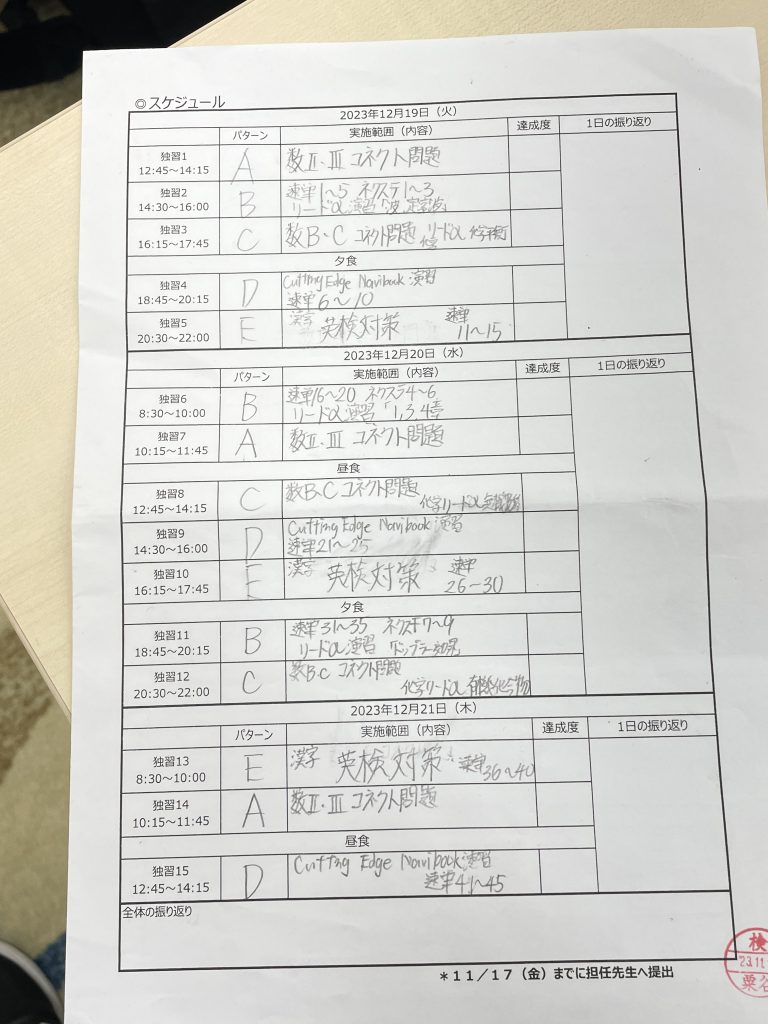 ◎スケジュール
2023年12月19日（火）
パターン 実施範囲（内容） 達成度 1日の振り返り
独習1
12:45～14:15 A 数Ⅱ・Ⅲ コネクト問題
独習2
14:30～16:00 B 速単1～5 ネクステ1～3
リードα演習「波、定常波」
独習3
16:15～17:45 C 数B・C コネクト問題 リードα
夕食
独習4
18:45～20:15 D Cutting Edge Navibook 演習
速単6～10
独習5
20:30～22:00 E 漢字 英検対策 速単
11～15
2023年12月20日（水）
パターン 実施範囲（内容） 達成度 1日の振り返り
独習6
8:30～10:00 B 速単16～20 ネクステ4～6
リードα演習「1,3,4章
独習7
10:15～11:45 A 数Ⅱ・Ⅲ コネクト問題
昼食
独習8
12:45～14:15 C 数B・C コネクト問題
化学リードα
独習9
14:30～16:00 D Cutting Edge Navibook 演習
速単21～25
独習10
16:15～17:45 E 漢字 英検対策 速単
26～30
夕食
独習11
18:45～20:15 B 速単31～35 ネクステ7～9
リードα演習 「ドップラー効果」
独習12
20:30～22:00 C 数B・C コネクト問題
化学リードα 有機化合物
2023年12月21日（木）
パターン 実施範囲（内容） 達成度 1日の振り返り
独習13
8:30～10:00 E 漢字 英検対策 速単36～40
独習14
10:15～11:45 A 数Ⅱ・Ⅲ コネクト問題
昼食
独習15
12:45～14:15 D Cutting Edge Navibook 演習
速単41～45
全体の振り返り
＊11／17（金）までに担任先生へ提出
検
23.11
粟谷